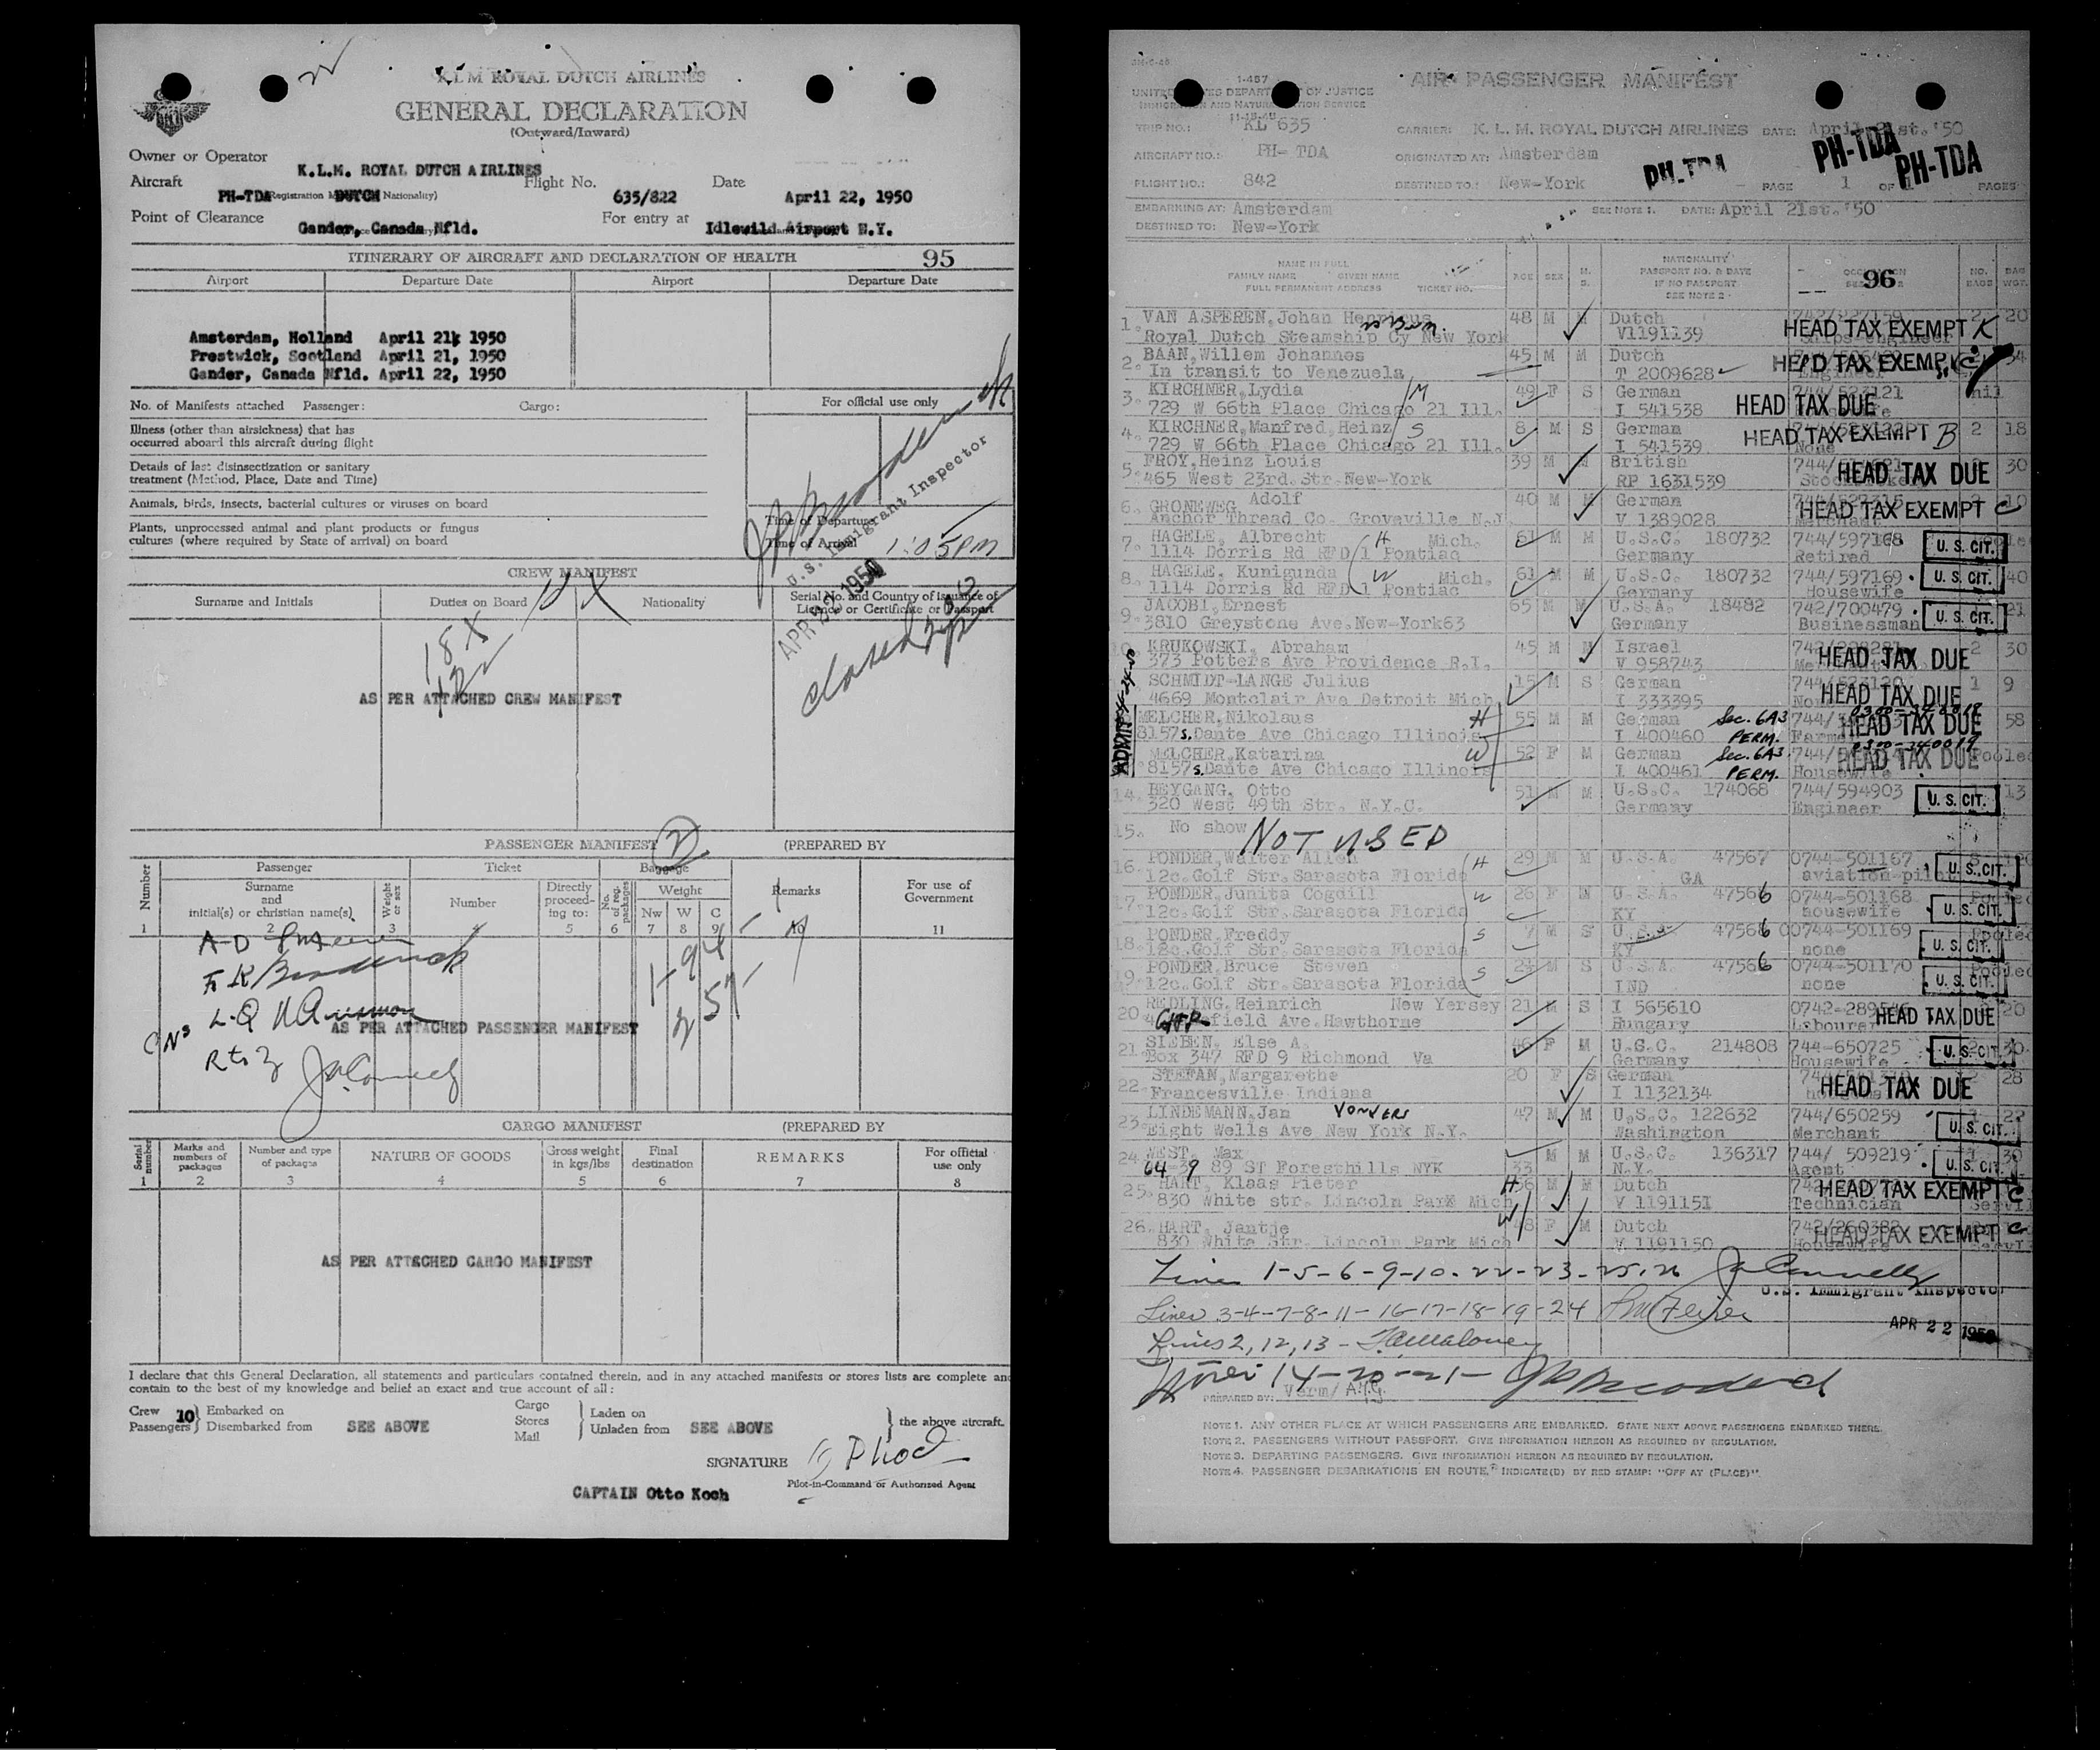 K.L.M ROYAL DUTCH AIRLINES
GENERAL DECLARATION
(Outward/Inward)
Owner or Operator
K.L.M. ROYAL DUTCH AIRLINES
Aircraft
Flight No.
Date
PH-TDA (Registration DUTCH Nationality)
635/822
April 22, 1950
Point of Clearance
For entry at
Gander, Canada Nfld.
Idlewild Airport N.Y.
ITINERARY OF AIRCRAFT AND DECLARATION OF HEALTH
95
Airport Departure Date Airport Departure Date
Amsterdam, Holland April 21, 1950
Prestwick, Scotland April 21, 1950
Gander, Canada Nfld. April 22, 1950
No. of Manifests attached Passenger: Cargo:
For official use only
Illness (other than airsickness) that has
occurred aboard this aircraft during flight
Details of last disinsectization or sanitary
treatment (Method, Place, Date and Time)
Animals, birds, insects, bacterial cultures or viruses on board
Plants, unprocessed animal and plant products or fungus
cultures (where required by State of arrival) on board
Time of Departure
Time of Arrival 1:05 PM
U.S. Immigrant Inspector
APR 22 1950
closed
CREW MANIFEST
Surname and Initials Duties on Board Nationality Serial No. and Country of Issuance of
Licence or Certificate or Passport
AS PER ATTACHED CREW MANIFEST
PASSENGER MANIFEST 2 (PREPARED BY
Number
Passenger Ticket Baggage Remarks For use of
Government
Surname
and
initial(s) or christian name(s)
Weight or sex
Number
Directly
proceed-
ing to:
No. of reg. packages
Weight
Nw W C
1 2 3 4 5 6 7 8 9 10 11
AS PER ATTACHED PASSENGER MANIFEST
CARGO MANIFEST (PREPARED BY
Serial number
Marks and
numbers of
packages
Number and type
of packages
NATURE OF GOODS
Gross weight
in kgs/lbs
Final
destination
REMARKS
For official
use only
1 2 3 4 5 6 7 8
AS PER ATTACHED CARGO MANIFEST
I declare that this General Declaration, all statements and particulars contained therein, and in any attached manifests or stores lists are complete and
contain to the best of my knowledge and belief an exact and true account of all:
Crew 10 Embarked on
Passengers Disembarked from SEE ABOVE
Cargo
Stores
Mail
Laden on
Unladen from SEE ABOVE
the above aircraft.
SIGNATURE
Pilot-in-Command or Authorized Agent
CAPTAIN Otto Koch
AIR PASSENGER MANIFEST
UNITED STATES DEPARTMENT OF JUSTICE
IMMIGRATION AND NATURALIZATION SERVICE
TRIP NO.: KL 635 CARRIER: K. L. M. ROYAL DUTCH AIRLINES DATE: April 21st. '50
AIRCRAFT NO.: PH-TDA ORIGINATED AT: Amsterdam
PH-TDA PH-TDA PH-TDA
FLIGHT NO.: 842 DESTINED TO: New-York PAGE 1 OF PAGES
EMBARKING AT: Amsterdam SEE NOTE 1. DATE: April 21st. '50
DESTINED TO: New-York
NAME IN FULL
FAMILY NAME GIVEN NAME
FULL PERMANENT ADDRESS TICKET NO.
AGE SEX M. S.
NATIONALITY
PASSPORT NO. & DATE
IF NO PASSPORT
SEE NOTE 2
96
NO. BAGS
BAG WGT.
1. VAN ASPEREN, Johan Henricus 48 M M Dutch 2 20
Royal Dutch Steamship Cy New York V1191139 HEAD TAX EXEMPT K
2. BAAN, Willem Johannes 45 M M Dutch
In transit to Venezuela T 2009628 HEAD TAX EXEMPT C
3. KIRCHNER, Lydia M 49 F S German 744/523121 nil
729 W 66th Place Chicago 21 Ill. I 541538 HEAD TAX DUE
4. KIRCHNER, Manfred, Heinz S 8 M S German 2 18
729 W 66th Place Chicago 21 Ill. I 541539 None HEAD TAX EXEMPT B
5. FROY, Heinz Louis 39 M M British 30
465 West 23rd. Str. New-York RP 1631539 HEAD TAX DUE
6. GRONEWEG, Adolf 40 M M German
Anchor Thread Co. Groveville N.J. V 1389028 Merchant HEAD TAX EXEMPT C
7. HAGELE, Albrecht H Mich. 61 M M U.S.C. 180732 744/597168
1114 Dorris Rd RFD 1 Pontiac Germany Retired U. S. CIT.
8. HAGELE, Kunigunda W Mich. 61 M M U.S.C. 180732 744/597169 40
1114 Dorris Rd RFD 1 Pontiac Germany Housewife U. S. CIT.
9. JACOBI, Ernest 65 M M U.S.A. 18482 742/700479 21
3810 Greystone Ave. New-York 63 Germany Businessman U. S. CIT.
10. KRUKOWSKI, Abraham 45 M M Israel 2 30
373 Potters Ave Providence R.I. V 958743 HEAD TAX DUE
SCHMIDT-LANGE Julius 15 M S German 1 9
4669 Montclair Ave Detroit Mich. I 333395 HEAD TAX DUE
MELCHER, Nikolaus H 55 M M German Sec. 6A3 58
8157 S. Dante Ave Chicago Illinois I 400460 PERM. HEAD TAX DUE
MELCHER, Katarina W 52 F M German Sec. 6A3 0300-340019 Pooled
8157 S. Dante Ave Chicago Illinois I 400461 PERM. Housewife HEAD TAX DUE
14. BEYGANG, Otto 51 M M U.S.C. 174068 744/594903 13
320 West 49th Str. N.Y.C. Germany Engineer U. S. CIT.
15. No show NOT USED
16. PONDER, Walter Allen H 29 M M U.S.A. 47567 0744-501167
12c. Golf Str. Sarasota Florida GA aviation pilot U. S. CIT.
17. PONDER, Junita Cogdill W 26 F M U.S.A. 47566 0744-501168
12c. Golf Str. Sarasota Florida KY housewife U. S. CIT.
18. PONDER, Freddy S 7 M S U.S.A. 47566 0744-501169 Pooled
12c. Golf Str. Sarasota Florida KY none U. S. CIT.
19. PONDER, Bruce Steven S M S U.S.A. 47566 0744-501170 Pooled
12c. Golf Str. Sarasota Florida IND none U. S. CIT.
20. REDLING, Heinrich New Yersey 21 M S I 565610 0742-289546 20
field Ave. Hawthorne Hungary Labourer HEAD TAX DUE
21. SIEBEN, Else A. 46 F M U.S.C. 214808 744-650725 30
Box 347 RFD 9 Richmond Va Germany Housewife U. S. CIT.
22. STEFAN, Margarethe 20 F S German 28
Francesville Indiana I 1132134 HEAD TAX DUE
23. LINDEMANN, Jan 47 M M U.S.C. 122632 744/650259
Eight Wells Ave New York N.Y. Washington Merchant U. S. CIT.
24. WEST, Max M M U.S.C. 136317 744/ 509219 30
64-39 89 ST Foresthills NYK 33 N.Y. Agent U. S. CIT.
25. HART, Klaas Pieter H 56 M M Dutch
830 White str. Lincoln Park Mich V 1191151 Technician HEAD TAX EXEMPT C
26. HART, Jantje W 48 F M Dutch 742/260382
830 White Str. Lincoln Park Mich V 1191150 Housewife HEAD TAX EXEMPT C
Lines 1-5-6-9-10-22-23-25-26 J Connelly
U.S. Immigrant Inspector
Lines 3-4-7-8-11-16-17-18-19-24
APR 22 1950
Lines 2, 12, 13 - Maloney
Lines 14-20-21-
PREPARED BY:
NOTE 1. ANY OTHER PLACE AT WHICH PASSENGERS ARE EMBARKED. STATE NEXT ABOVE PASSENGERS EMBARKED THERE.
NOTE 2. PASSENGERS WITHOUT PASSPORT. GIVE INFORMATION HEREON AS REQUIRED BY REGULATION.
NOTE 3. DEPARTING PASSENGERS. GIVE INFORMATION HEREON AS REQUIRED BY REGULATION.
NOTE 4. PASSENGER DEBARKATIONS EN ROUTE, INDICATE(D) BY RED STAMP: "OFF AT (PLACE)".